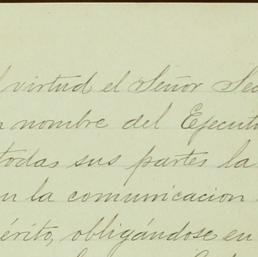 virtud el Señor Sec
nombre del Ejecuti
todas sus partes la
n la comunicacion
érito, obligándose en